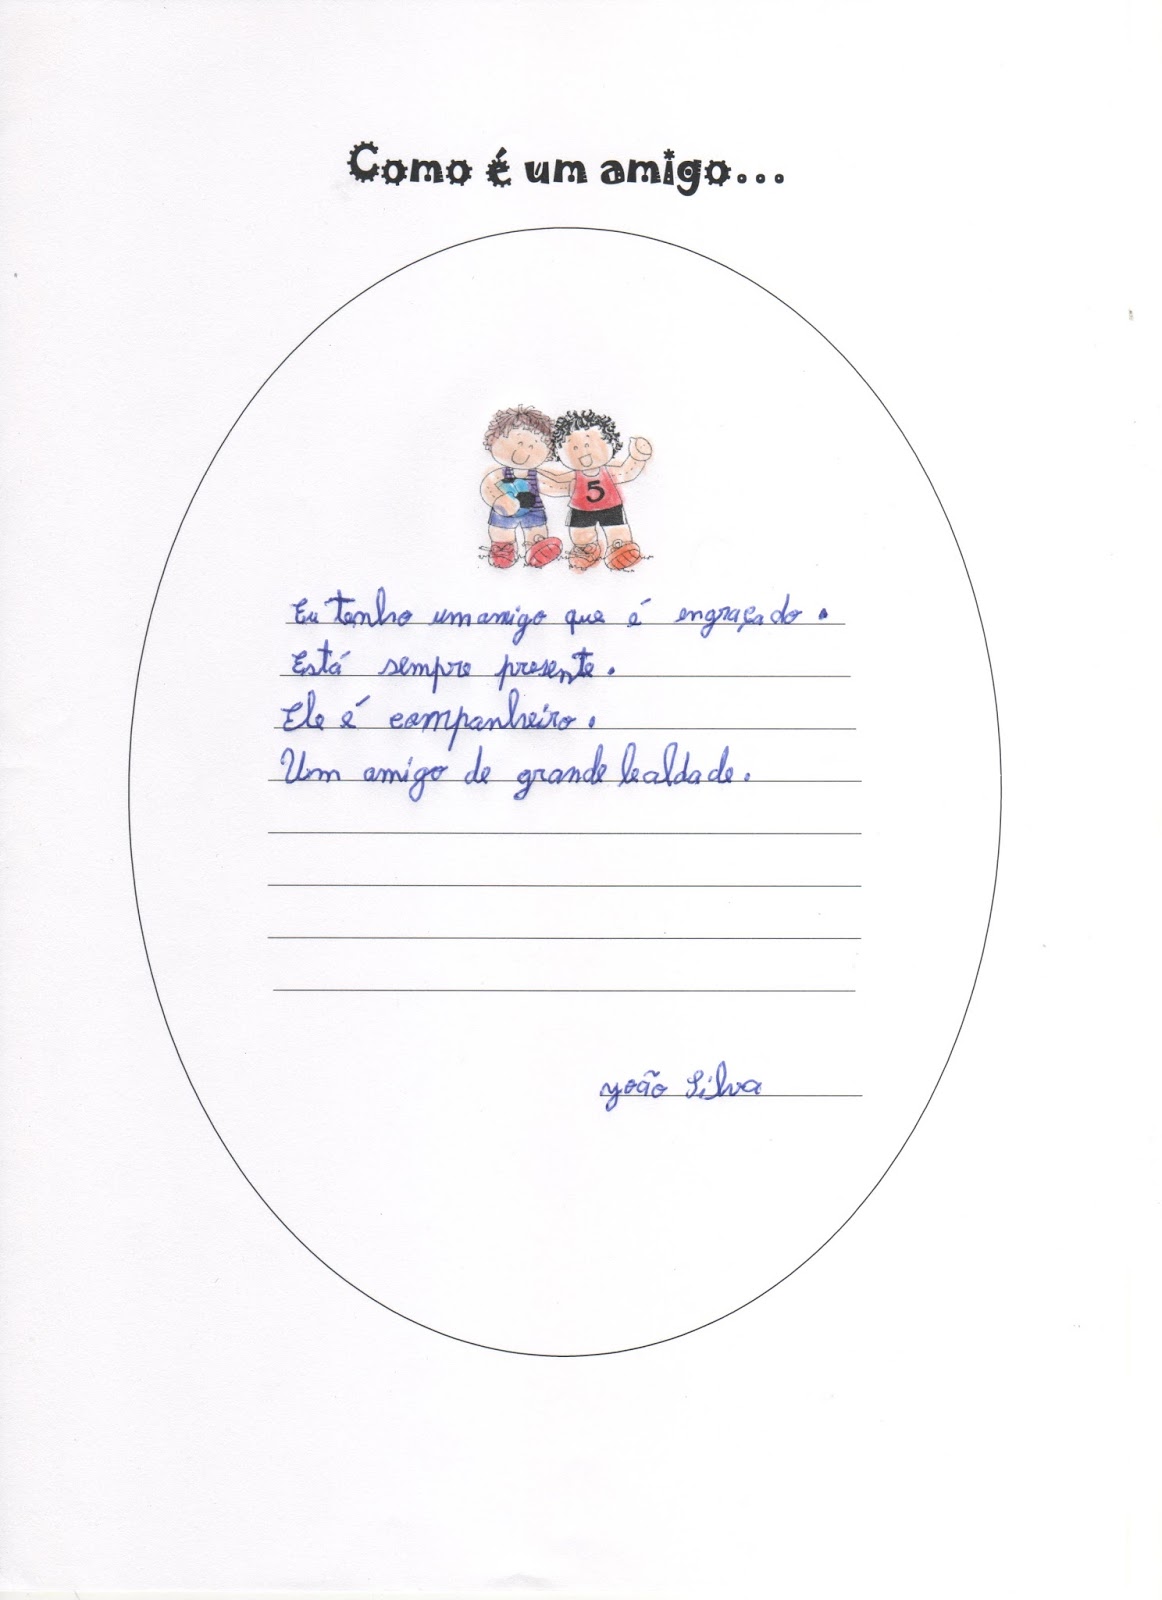 Como é um amigo...
5
Eu tenho um amigo que é engraçado.
Está sempre presente.
Ele é companheiro.
Um amigo de grande lealdade.
João Silva